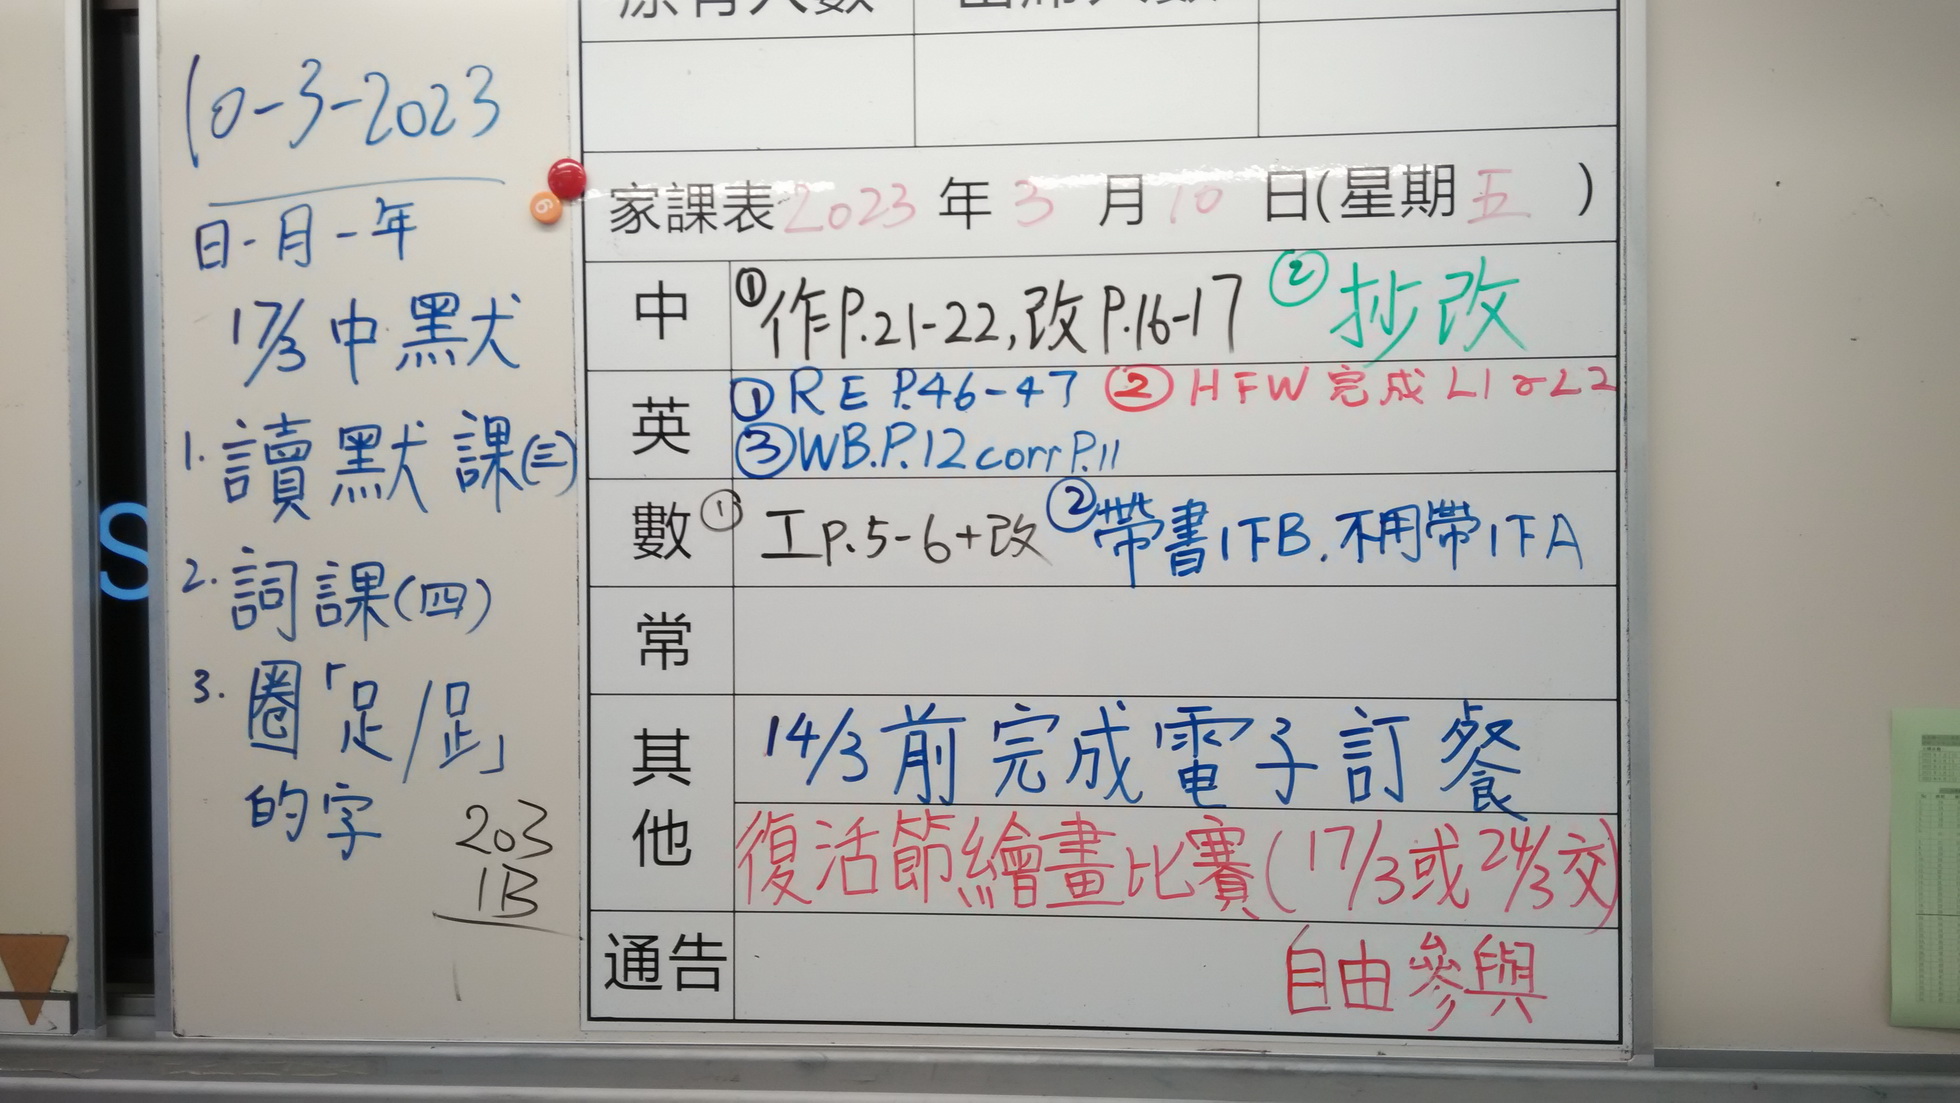 10-3-2023
日-月-年
17/3 中默
1. 讀默 課(三)
2. 詞 課(四)
3. 圈「足/𧾷」
的字
203
1B
S
6
家課表 2023 年 3 月 10 日(星期 五 )
中 ①作P.21-22,改P.16-17 ②抄改
英 ①RE P.46-47 ②HFW 完成 L1 & L2
③WB.P.12 corr P.11
數 ①工P.5-6+改 ②帶書1下B.不用帶1下A
常
其他 14/3前完成電子訂餐
復活節繪畫比賽(17/3或24/3交)
通告 自由參與